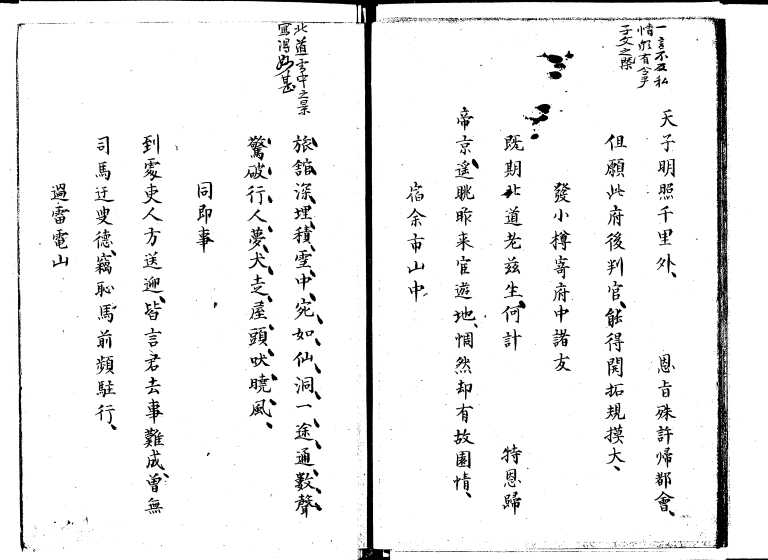 一言不及私
情飲有令乎
子文之槩
天子明照千里外、恩旨殊許帰都會、
但願此府後判官、能得開拓規摸大、
發小樽寄府中諸友
既期北道老茲生、何計特恩歸
帝京、遙眺昨来官遊地、惘然却有故園情、
宿余市山中
北道雪中之景
寫得妙甚
旅舘深埋積雪中、宛如仙洞一途通、數聲
驚破行人夢、犬走屋頭吠曉風、
同即事
到處吏人方送迎、皆言君去事難成、曽無
司馬迂叟德、竊恥馬前頻駐行、
過雷電山